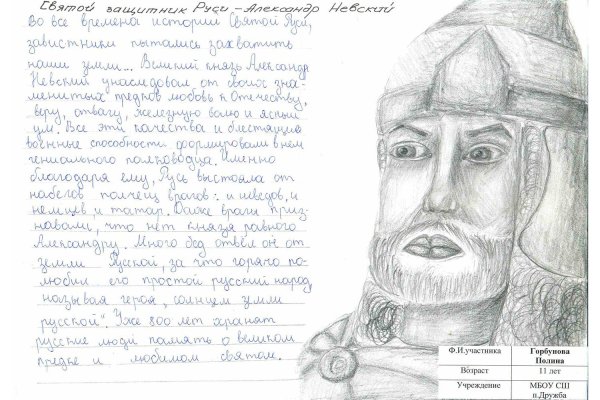 Святой защитник Руси – Александр Невский
Во все времена истории Святой Руси,
завистники пытались захватить
наши земли... Великий князь Александр
Невский унаследовал от своих зна-
менитых предков любовь к Отечеству,
веру, отвагу, железную волю и ясный
ум. Все эти качества и блестящие
военные способности формировали в нем
гениального полководца. Именно
благодаря ему, Русь выстояла от
набегов полчищ врагов: и шведов, и
немцев, и татар. Даже враги приз-
навали, что нет князя равного
Александру. Много бед отвёл он от
земли Русской, за что горячо по-
любил его простой русский народ,
называя героя „солнцем земли
русской“. Уже 800 лет хранят
русские люди память о великом
предке и любимом святом.
Ф.И.участника Горбунова Полина
Возраст 11 лет
Учреждение МБОУ СШ п.Дружба